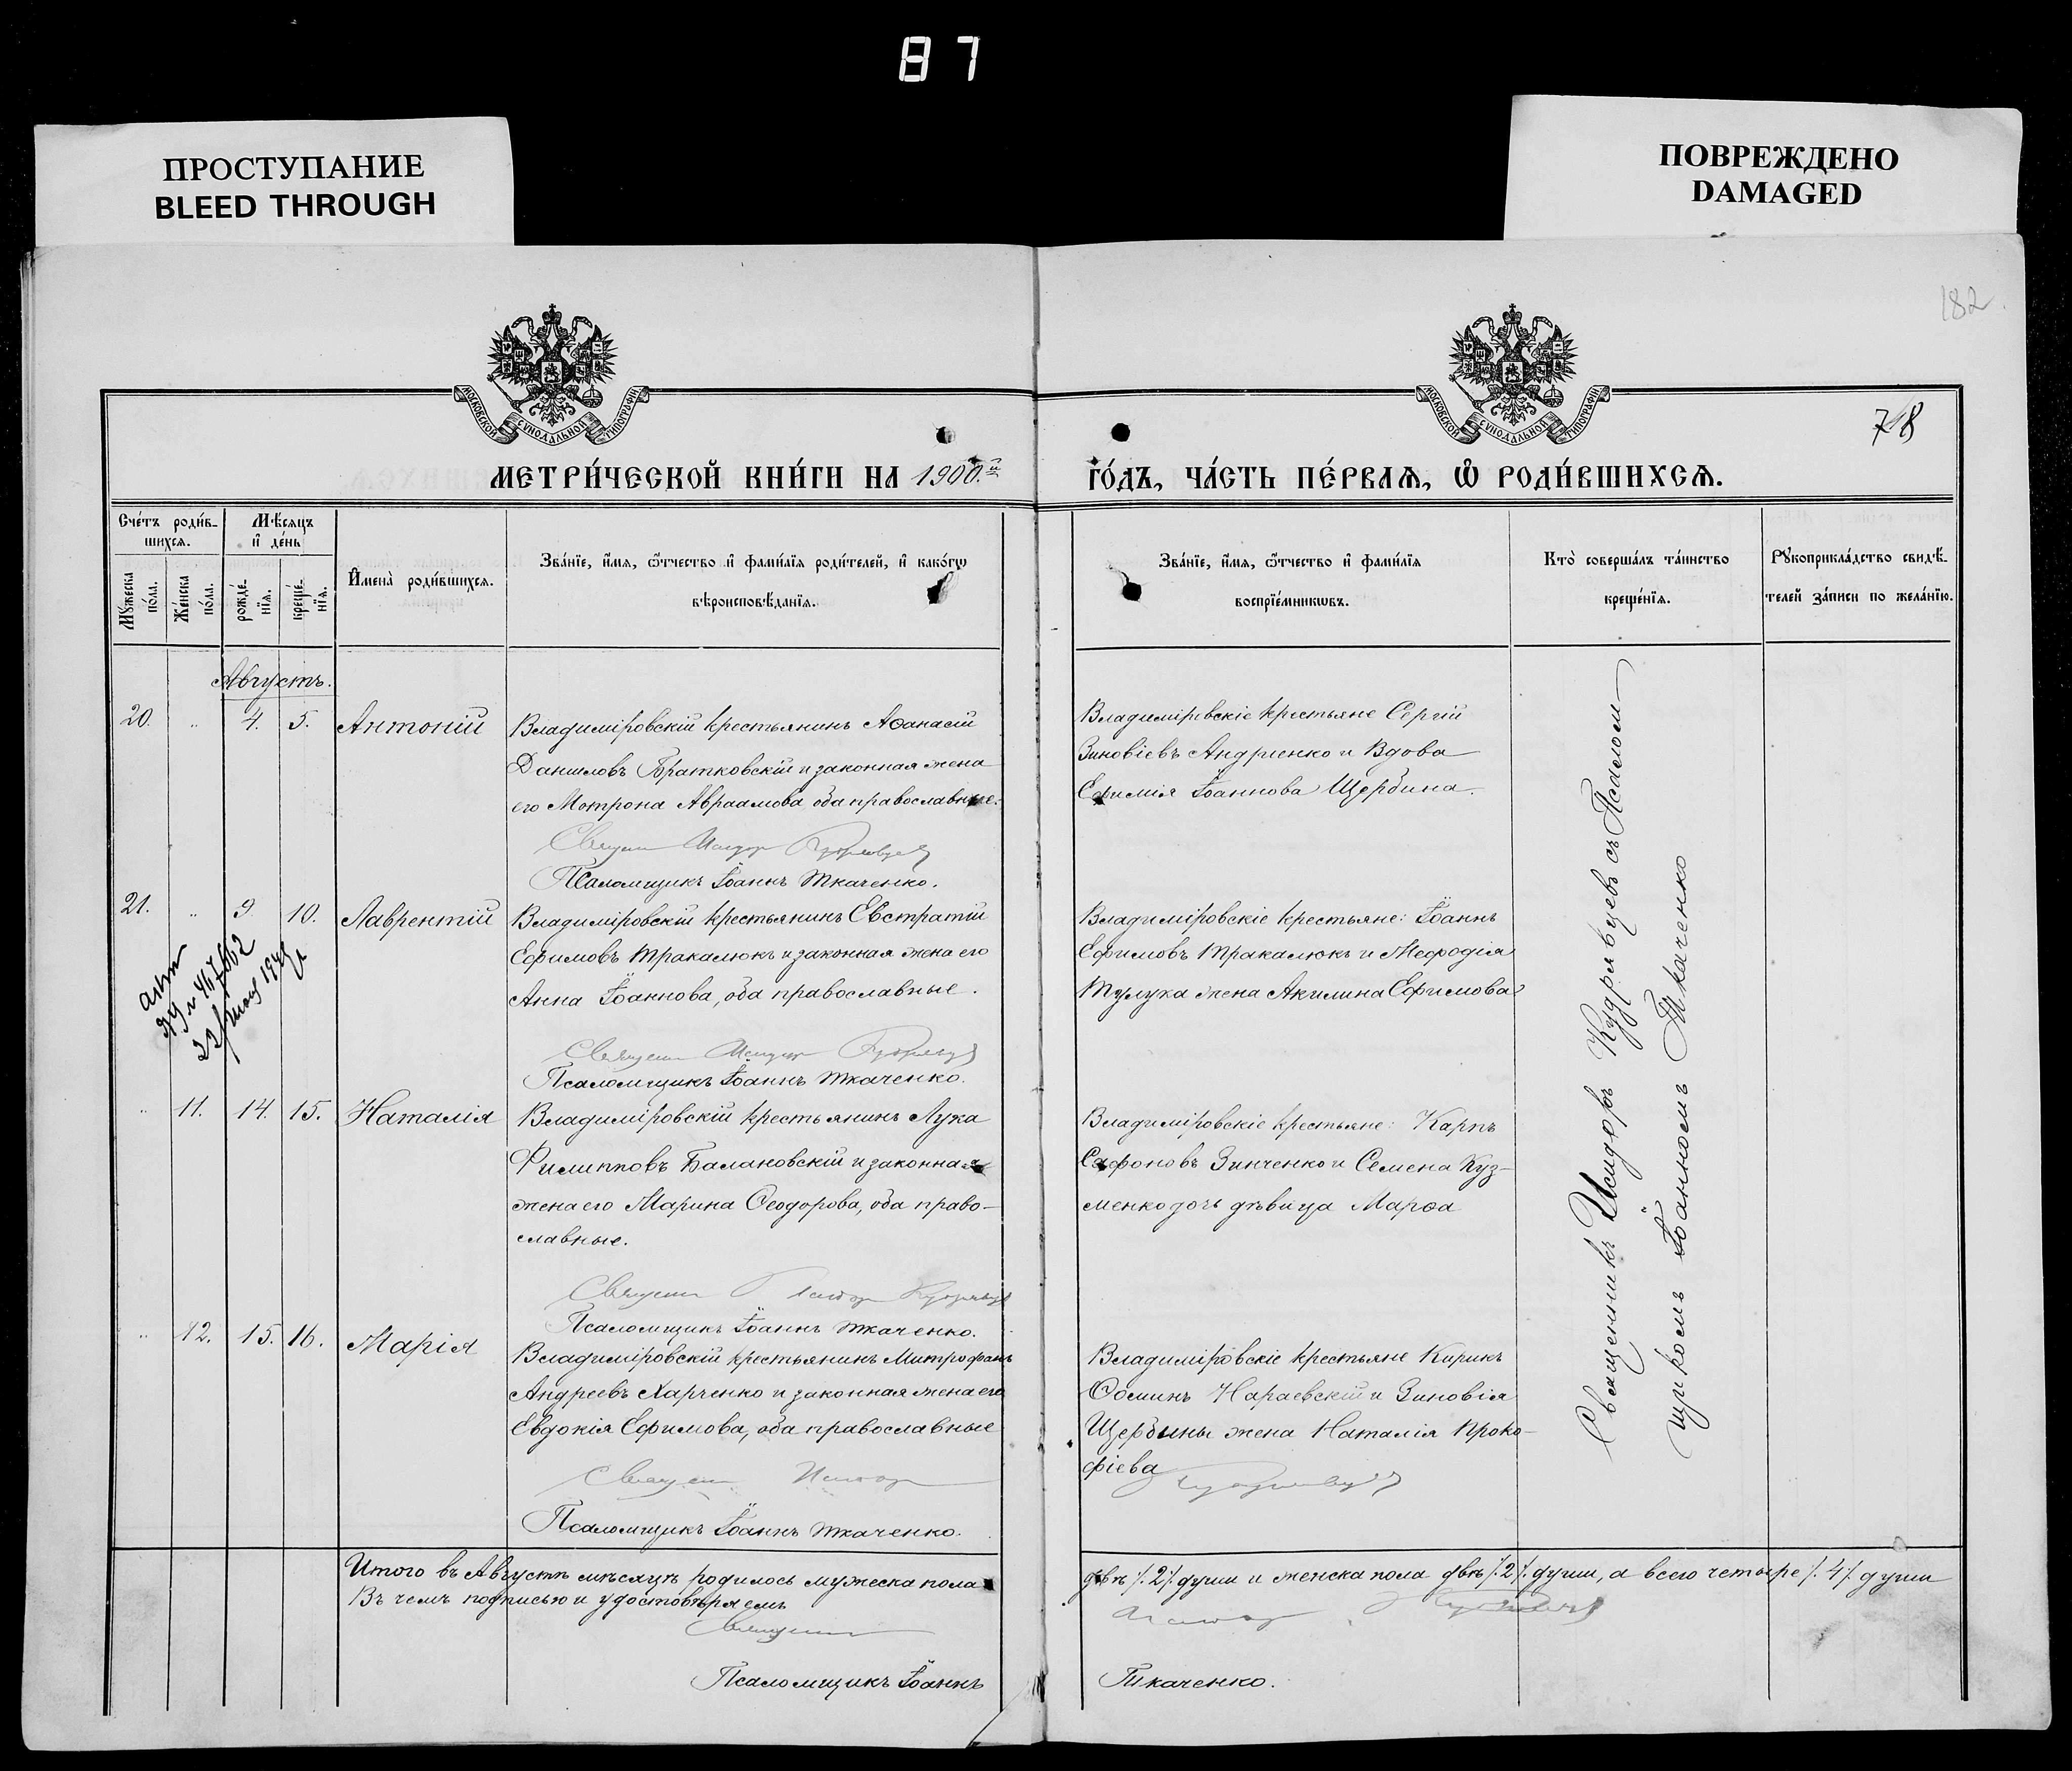 87
ПРОСТУПАНИЕ
BLEED THROUGH
ПОВРЕЖДЕНО
DAMAGED
182
МОСКОВСКОЙ СѴНОДАЛЬНОЙ ТИПОГРАФІИ
МОСКОВСКОЙ СѴНОДАЛЬНОЙ ТИПОГРАФІИ
78
МЕТРИ́ЧЕСКОЙ КНИ́ГИ НА 1900.й
ГО́ДЪ, ЧА́СТЬ ПЕ́РВАѦ, Ѿ РОДИ́ВШИХСѦ.
Сче́тъ роди́в-
шихсѧ.
Мꙋ́жеска
по́ла.
Же́нска
по́ла.
Мѣ́сѧцъ
и҆ де́нь
рожде́-
нїѧ.
креще́-
нїѧ.
И҆мена̀ роди́вшихсѧ.
Зва́нїе, и҆́мѧ, ѻ҆́тчество и҆ фами́лїѧ роди́телей, и҆ како́гѡ
вѣроисповѣ́данїѧ.
Зва́нїе, и҆́мѧ, ѻ҆́тчество и҆ фами́лїѧ
воспрїе́мникѡвъ.
Кто̀ соверша́лъ та́инство
креще́нїѧ.
Рꙋкоприкла́дство свидѣ́-
телей за́писи по жела́нїю.
Августъ.
20. 4. 5. Антоній
Владиміровскій крестьянинъ Аѳанасій
Даниловъ Братковскій и законная жена
его Мотрона Авраамова оба православные.
Священ Исидор Кудрявцев
Псаломщикъ Іоаннъ Ткаченко.
Владиміровскіе крестьяне Сергій
Зиновіевъ Андріенко и Вдова
Ефимія Іоаннова Щербина.
21. 9. 10. Лаврентій
Владиміровскій крестьянинъ Евстратій
Ефимовъ Тракалюкъ и законная жена его
Анна Іоаннова, оба православные.
Священ Исидор Кудрявцев
Псаломщикъ Іоаннъ Ткаченко.
Владиміровскіе крестьяне: Іоаннъ
Ефимовъ Тракалюкъ и Меѳодія
Тулука жена Акилина Ефимова
11. 14. 15. Наталія
Владиміровскій крестьянинъ Лука
Филипповъ Балановскій и законная
жена его Марина Ѳеодорова, оба право-
славные.
Священ Исидор Кудрявцев
Псаломщикъ Іоаннъ Ткаченко.
Владиміровскіе крестьяне: Карпъ
Сафоновъ Зинченко и Семена Куз-
менко дочь дѣвица Марѳа
12. 15. 16. Марія
Владиміровскій крестьянинъ Митрофанъ
Андреевъ Харченко и законная жена его
Евдокія Ефимова, оба православные
Священ Исидор
Псаломщикъ Іоаннъ Ткаченко.
Владиміровскіе крестьяне Кирикъ
Ѳоминъ Нараевскій и Зиновія
Щербины жена Наталія Проко-
фіева
Кудрявцев
Священникъ Исидоръ Кудрявцевъ съ Псалом-
щикомъ Іоанномъ Ткаченко
Итого въ Августѣ мѣсяцѣ родилось мужеска пола
двѣ /.2/. души и женска пола двѣ /.2/. души, а всего четыре /.4/. души
Въ чемъ подписью и удостовѣряемъ
Священ
Исидор Кудрявцев
Псаломщикъ Іоаннъ
Ткаченко.